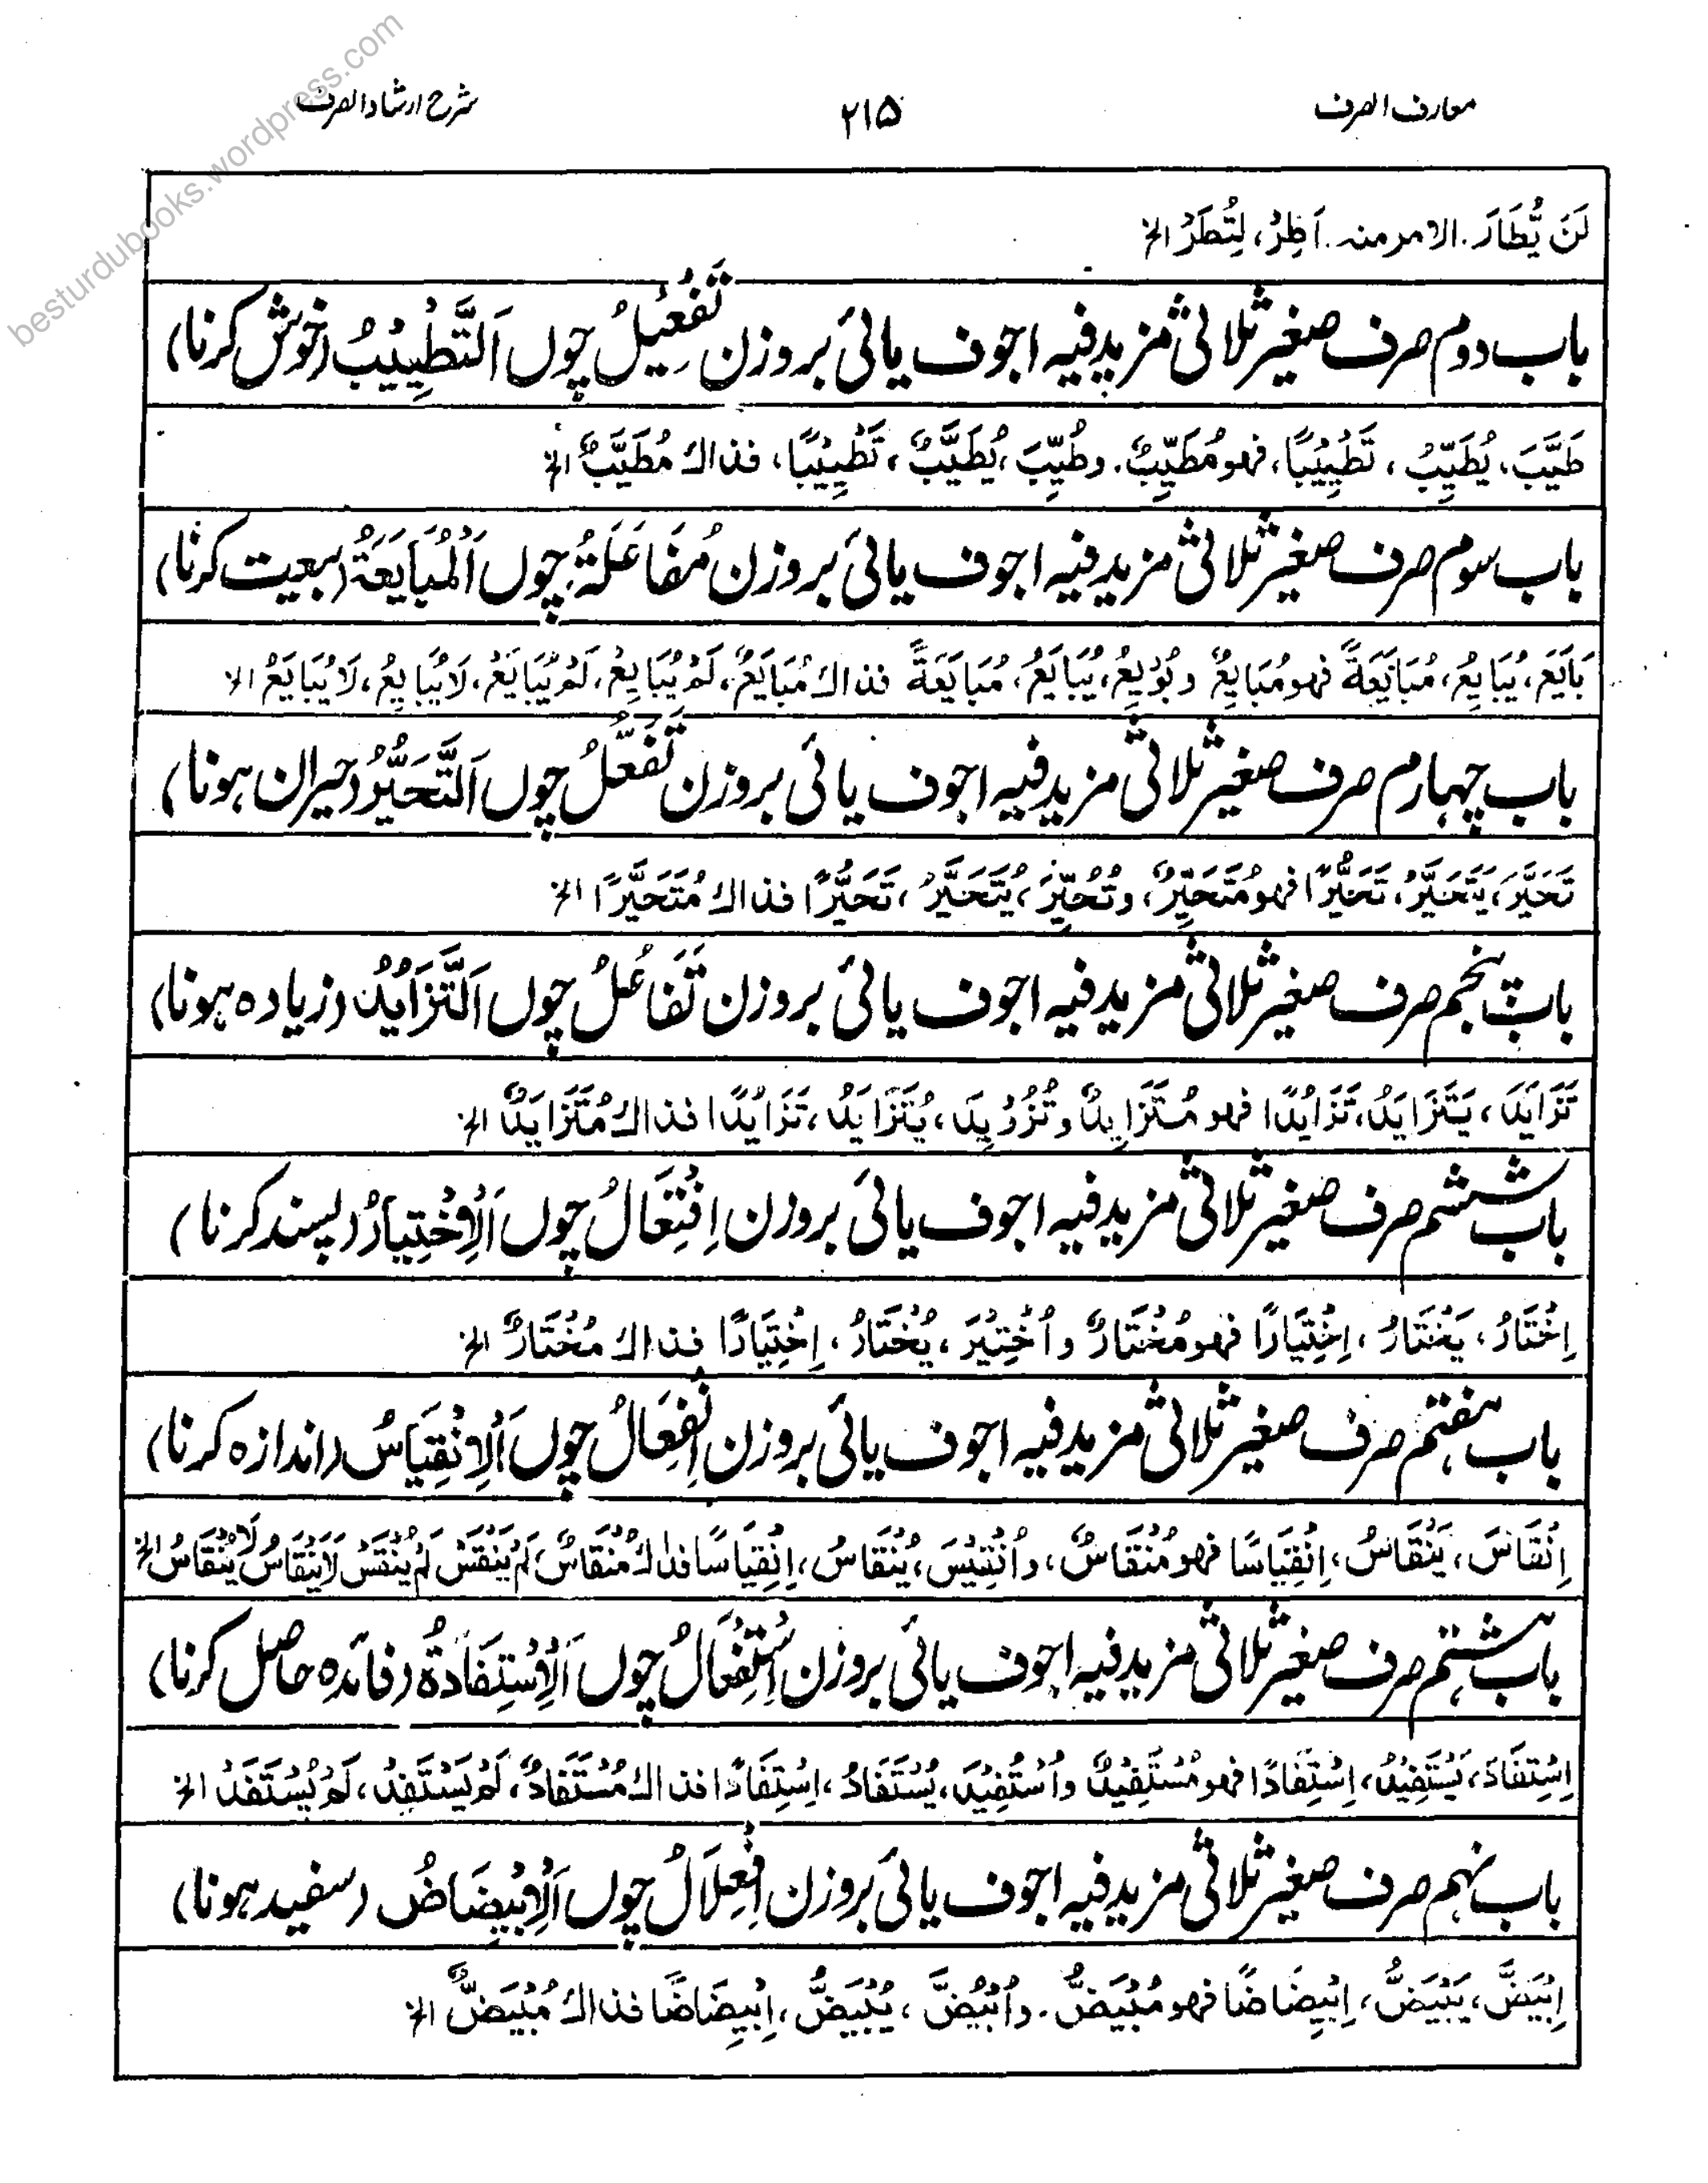 معارف الصرف
۲۱۵
شرح ارشاد الصرف
besturdubooks.wordpress.com
لَنْ يُّطَارَ. الامر منہ. اَطِرْ، لِتُطَرْ الخ
باب دوم صرف صغیر ثلاثی مزید فیہ اجوف یائی بروزن تَفْعِيْلُ چوں اَلتَّطْيِيْبُ (خوش کرنا)
طَيَّبَ، يُطَيِّبُ ، تَطْيِيْبًا، فهو مُطَيِّبٌ. وطُيِّبَ ، يُطَيَّبُ ، تَطْيِيْبًا، فذاك مُطَيَّبٌ الخ
باب سوم صرف صغیر ثلاثی مزید فیہ اجوف یائی بروزن مُفَاعَلَةُ چوں اَلْمُبَايَعَةُ (بیعت کرنا)
بَايَعَ، يُبَايِعُ، مُبَايَعَةً فهو مُبَايِعٌ وبُوْيِعَ، يُبَايَعُ، مُبَايَعَةً فذاك مُبَايَعٌ، لَمْ يُبَايِعْ، لَمْ يُبَايَعْ، لَا يُبَايِعُ، لَا يُبَايَعُ الا
باب چہارم صرف صغیر ثلاثی مزید فیہ اجوف یائی بروزن تَفَعُّلُ چوں اَلتَّحَيُّرُ (حیران ہونا)
تَحَيَّرَ، يَتَحَيَّرُ، تَحَيُّرًا فهو مُتَحَيِّرٌ، وتُحُيِّرَ، يُتَحَيَّرُ، تَحَيُّرًا فذاك مُتَحَيَّرًا الخ
باب پنجم صرف صغیر ثلاثی مزید فیہ اجوف یائی بروزن تَفَاعُلُ چوں اَلتَّزَايُدُ (زیادہ ہونا)
تَزَايَدَ، يَتَزَايَدُ، تَزَايُدًا فهو مُتَزَايِدٌ وتُزُوْيِدَ، يُتَزَايَدُ، تَزَايُدًا فذاك مُتَزَايَدٌ الخ
باب ششم صرف صغیر ثلاثی مزید فیہ اجوف یائی بروزن اِفْتِعَالُ چوں اَلْاِخْتِيَارُ (پسند کرنا)
اِخْتَارُ، يَخْتَارُ، اِخْتِيَارًا فهو مُخْتَارٌ واُخْتِيْرَ، يُخْتَارُ، اِخْتِيَارًا فذاك مُخْتَارٌ الخ
باب ہفتم صرف صغیر ثلاثی مزید فیہ اجوف یائی بروزن اِنْفِعَالُ چوں اَلْاِنْقِيَاسُ (اندازہ کرنا)
اِنْقَاسَ، يَنْقَاسُ، اِنْقِيَاسًا فهو مُنْقَاسٌ، واُنْقِيْسَ، يُنْقَاسُ، اِنْقِيَاسًا فذاك مُنْقَاسٌ، لَمْ يَنْقَسْ لَمْ يُنْقَسْ لَا يَنْقَاسُ لَا يُنْقَاسُ الخ
باب ہشتم صرف صغیر ثلاثی مزید فیہ اجوف یائی بروزن اِسْتِفْعَالُ چوں اَلْاِسْتِفَادَةُ (فائدہ حاصل کرنا)
اِسْتِفَادَ، يَسْتَفِيْدُ، اِسْتِفَادًا فهو مُسْتَفِيْدٌ واُسْتُفِيْدَ، يُسْتَفَادُ، اِسْتِفَادًا فذاك مُسْتَفَادٌ، لَمْ يَسْتَفِدْ، لَمْ يُسْتَفَدْ الخ
باب نہم صرف صغیر ثلاثی مزید فیہ اجوف یائی بروزن اِفْعِلَالُ چوں اَلْاِبْيِضَاضُ (سفید ہونا)
اِبْيَضَّ، يَبْيَضُّ، اِبْيِضَاضًا فهو مُبْيَضٌّ. واُبْيُضَّ، يُبْيَضُّ، اِبْيِضَاضًا فذاك مُبْيَضٌّ الخ